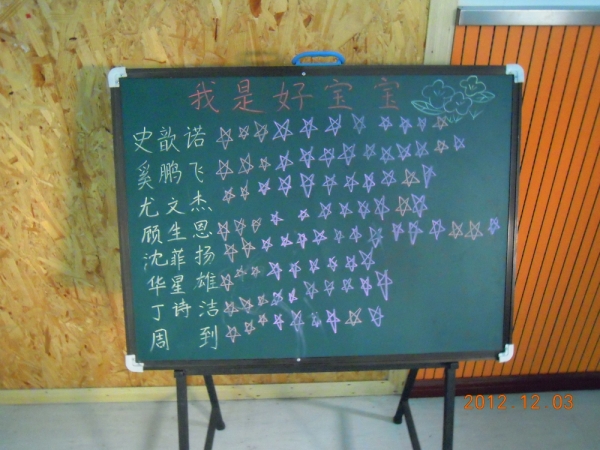 我是好宝宝
史歆诺
奚鹏飞
尤文杰
顾生恩
沈菲扬
华星雄
丁诗洁
周到
2012.12.03